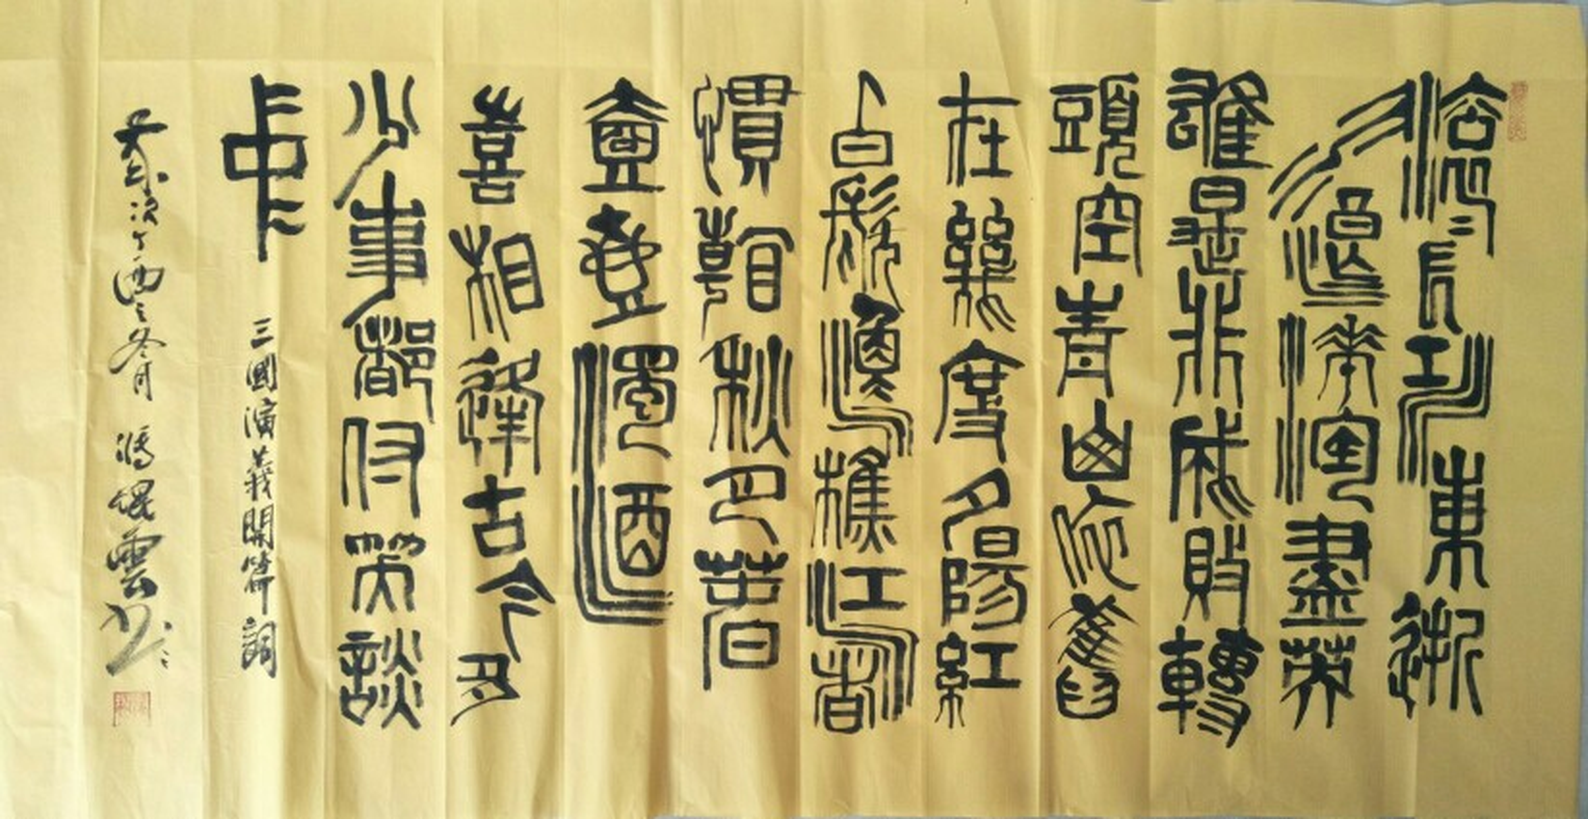 滾〻長江東逝
水浪花淘盡英
雄是非成敗轉
頭空青山依舊
在幾度夕陽紅
白髮漁樵江渚
慣看秋月春
壹壺濁酒
喜相逢古今多
少事都付笑談
中 三國演義開篇詞
歲次丁酉之冬月 馮焜雲书